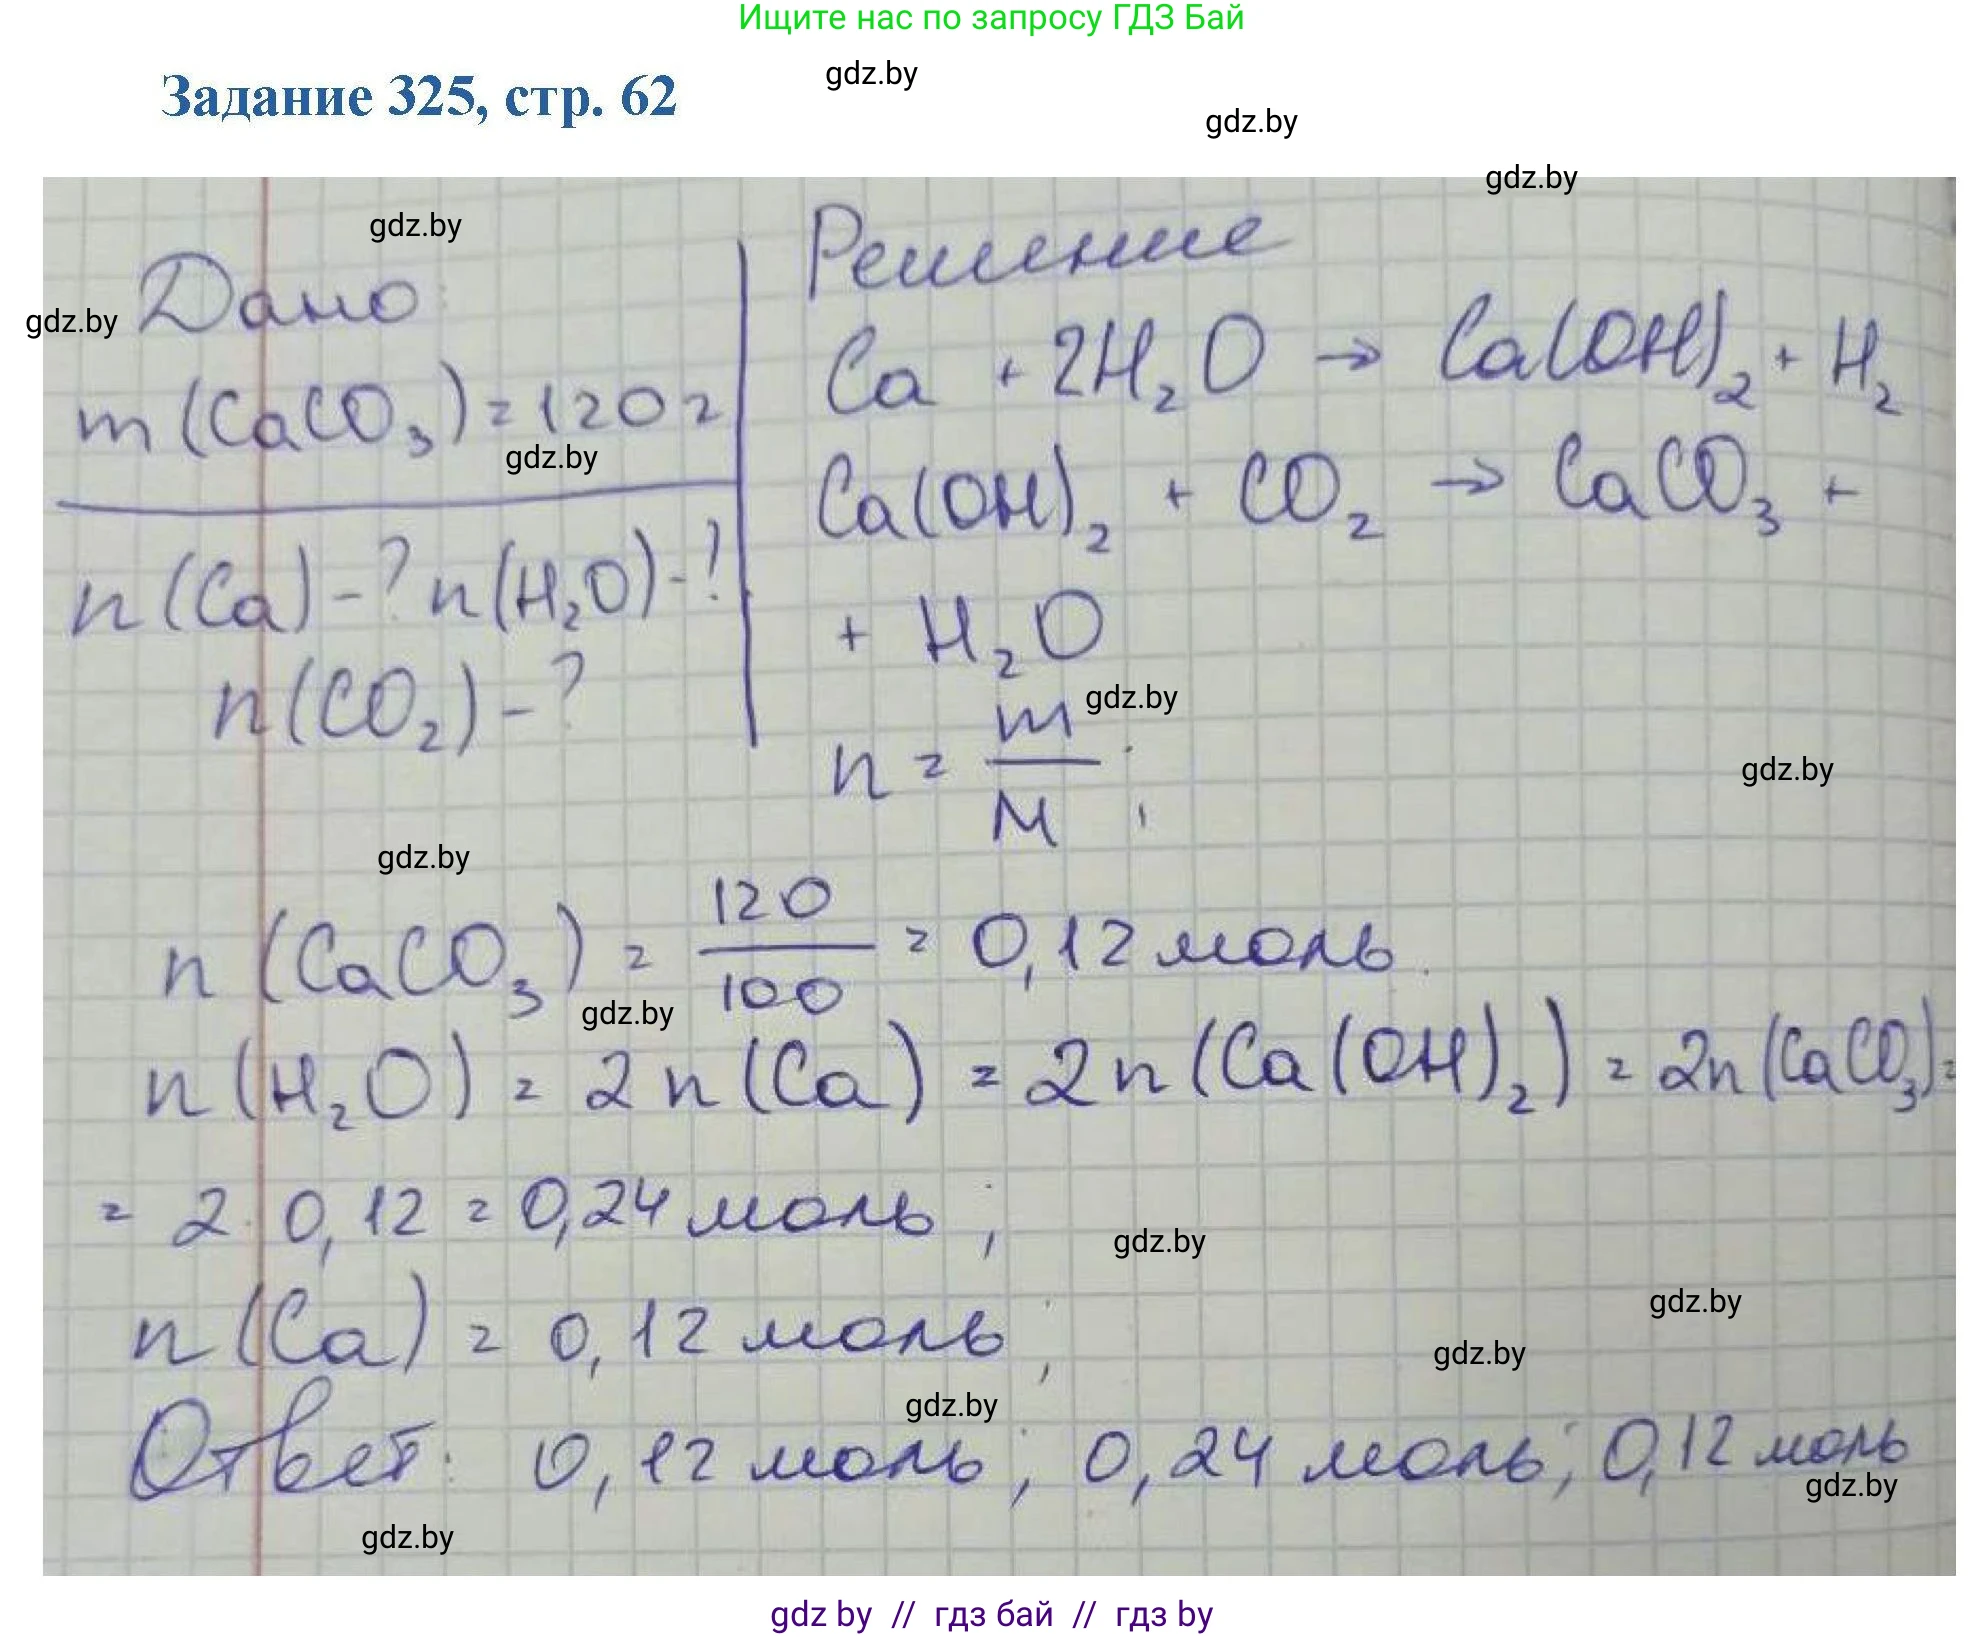 Ищите нас по запросу ГДЗ Бай
gdz.by
Задание 325, стр. 62
gdz.by
gdz.by
gdz.by
Решение
Дано:
gdz.by
Ca + 2H₂O → Ca(OH)₂ + H₂
m(CaCO₃) = 120 г
gdz.by
Ca(OH)₂ + CO₂ → CaCO₃ +
n(Ca) - ? n(H₂O) - ?
+ H₂O
n(CO₂) - ?
gdz.by
n = m/M;
gdz.by
gdz.by
n(CaCO₃) = 120/100 = 0,12 моль.
gdz.by
n(H₂O) = 2n(Ca) = 2n(Ca(OH)₂) = 2n(CaCO₃) =
= 2 · 0,12 = 0,24 моль;
gdz.by
gdz.by
n(Ca) = 0,12 моль;
gdz.by
gdz.by
Ответ: 0,12 моль; 0,24 моль; 0,12 моль
gdz.by
gdz.by
gdz by // гдз бай // гдз by